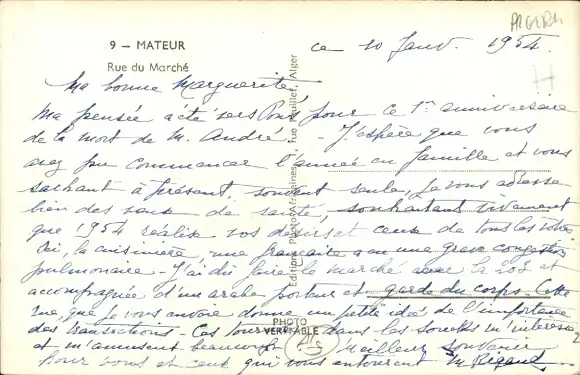 ALGERIE
9 – MATEUR
Rue du Marché
ce 10 Janv. 1954.
Ma bonne Marguerite,
Ma pensée a été vers vous pour ce 1er anniversaire
de la mort de M. André. J'espère que vous
avez pu commencer l'année en famille et vous
sachant à présent souvent seule, je vous adresse
bien des vœux de santé, souhaitant vivement
que 1954 réalise vos désirs et ceux de tous les vôtres
Ici, la cuisinière, une française a eu une grave congestion
pulmonaire – J'ai dû faire le marché avec la 203 et
accompagnée d'un arabe porteur et garde du corps. Cette
rue, que je vous envoie donne un petite idée de l'importance
des transactions – Ces tournées dans les souks m'intéressent
et m'amusent beaucoup. Meilleur souvenir
pour vous et ceux qui vous entourent M. Rigaud
Editions Photo-Africaines, rue, Alger
PHOTO
VERITABLE